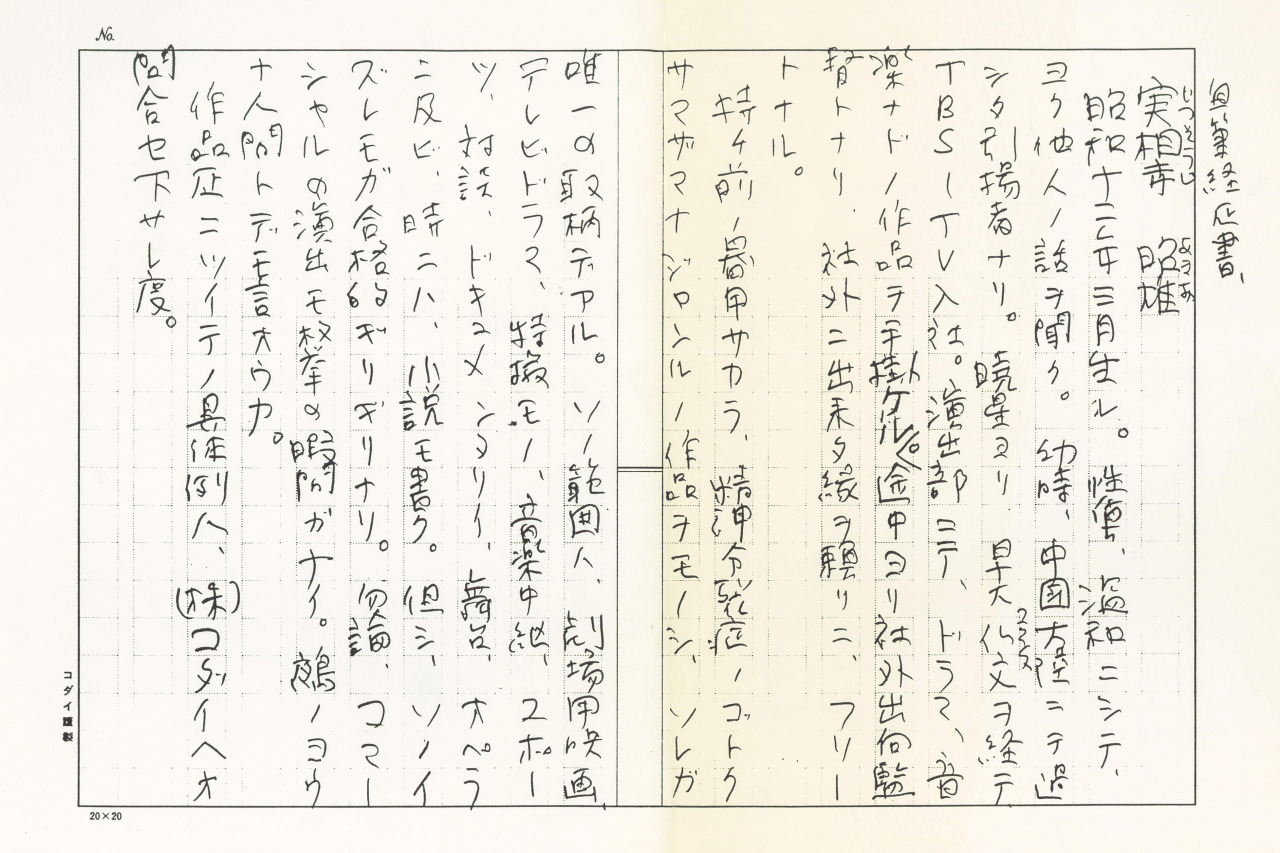 No.
自筆経歴書、
実相寺 昭雄
じっそうじ あきお
昭和十二年三月生ル。性質、温和ニシテ、
ヨク他人ノ話ヲ聞ク。幼時、中国大陸ニテ過
シタ引揚者ナリ。暁星ヨリ 早大仏文ヲ経テ
フランス
TBSーTV入社。演出部ニテ、ドラマ、音
楽ナドノ作品ヲ手掛ケル。途中ヨリ社外出向監
督トナリ、社外ニ出来タ縁ヲ頼リニ、フリー
トナル。
持チ前ノ器用サカラ、精神分裂症ノゴトク
サマザマナジャンルノ作品ヲモノシ、ソレガ
唯一の取柄デアル。ソノ範囲ハ、劇場用映画
テレビドラマ、特撮モノ、音楽中継、スポー
ツ、対談、ドキュメンタリイ、舞台、オペラ
ニ及ビ、時ニハ、小説モ書ク。但シ、ソノイ
ズレモガ合格的ギリギリナリ。勿論、コマー
シャルの演出モ枚挙の暇間ガナイ。鵺ノヨウ
ナ人間トデモ言オウカ。
作品歴ニツイテノ具体例ハ、(株)コダイヘオ
問合セ下サレ度。
コダイ謹製
20×20